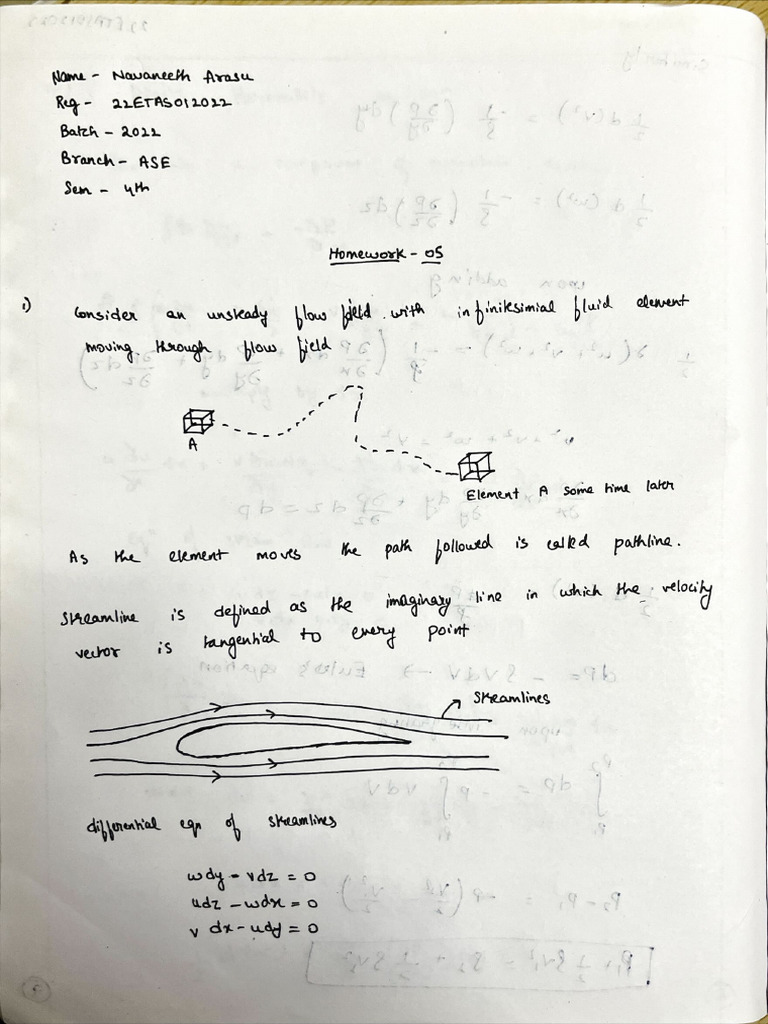 Name - Navaneeth Arasu
Reg - 22ETAS012022
Batch - 2022
Branch - ASE
Sem - 4th
Homework - 05
1) Consider an unsteady flow field with infinitesimial fluid element
moving through flow field
A
Element A some time later
As the element moves the path followed is called pathline.
Streamline is defined as the imaginary line in which the velocity
vector is tangential to every point
Streamlines
differential eqn of streamlines
wdy - vdz = 0
udz - wdx = 0
v dx - udy = 0